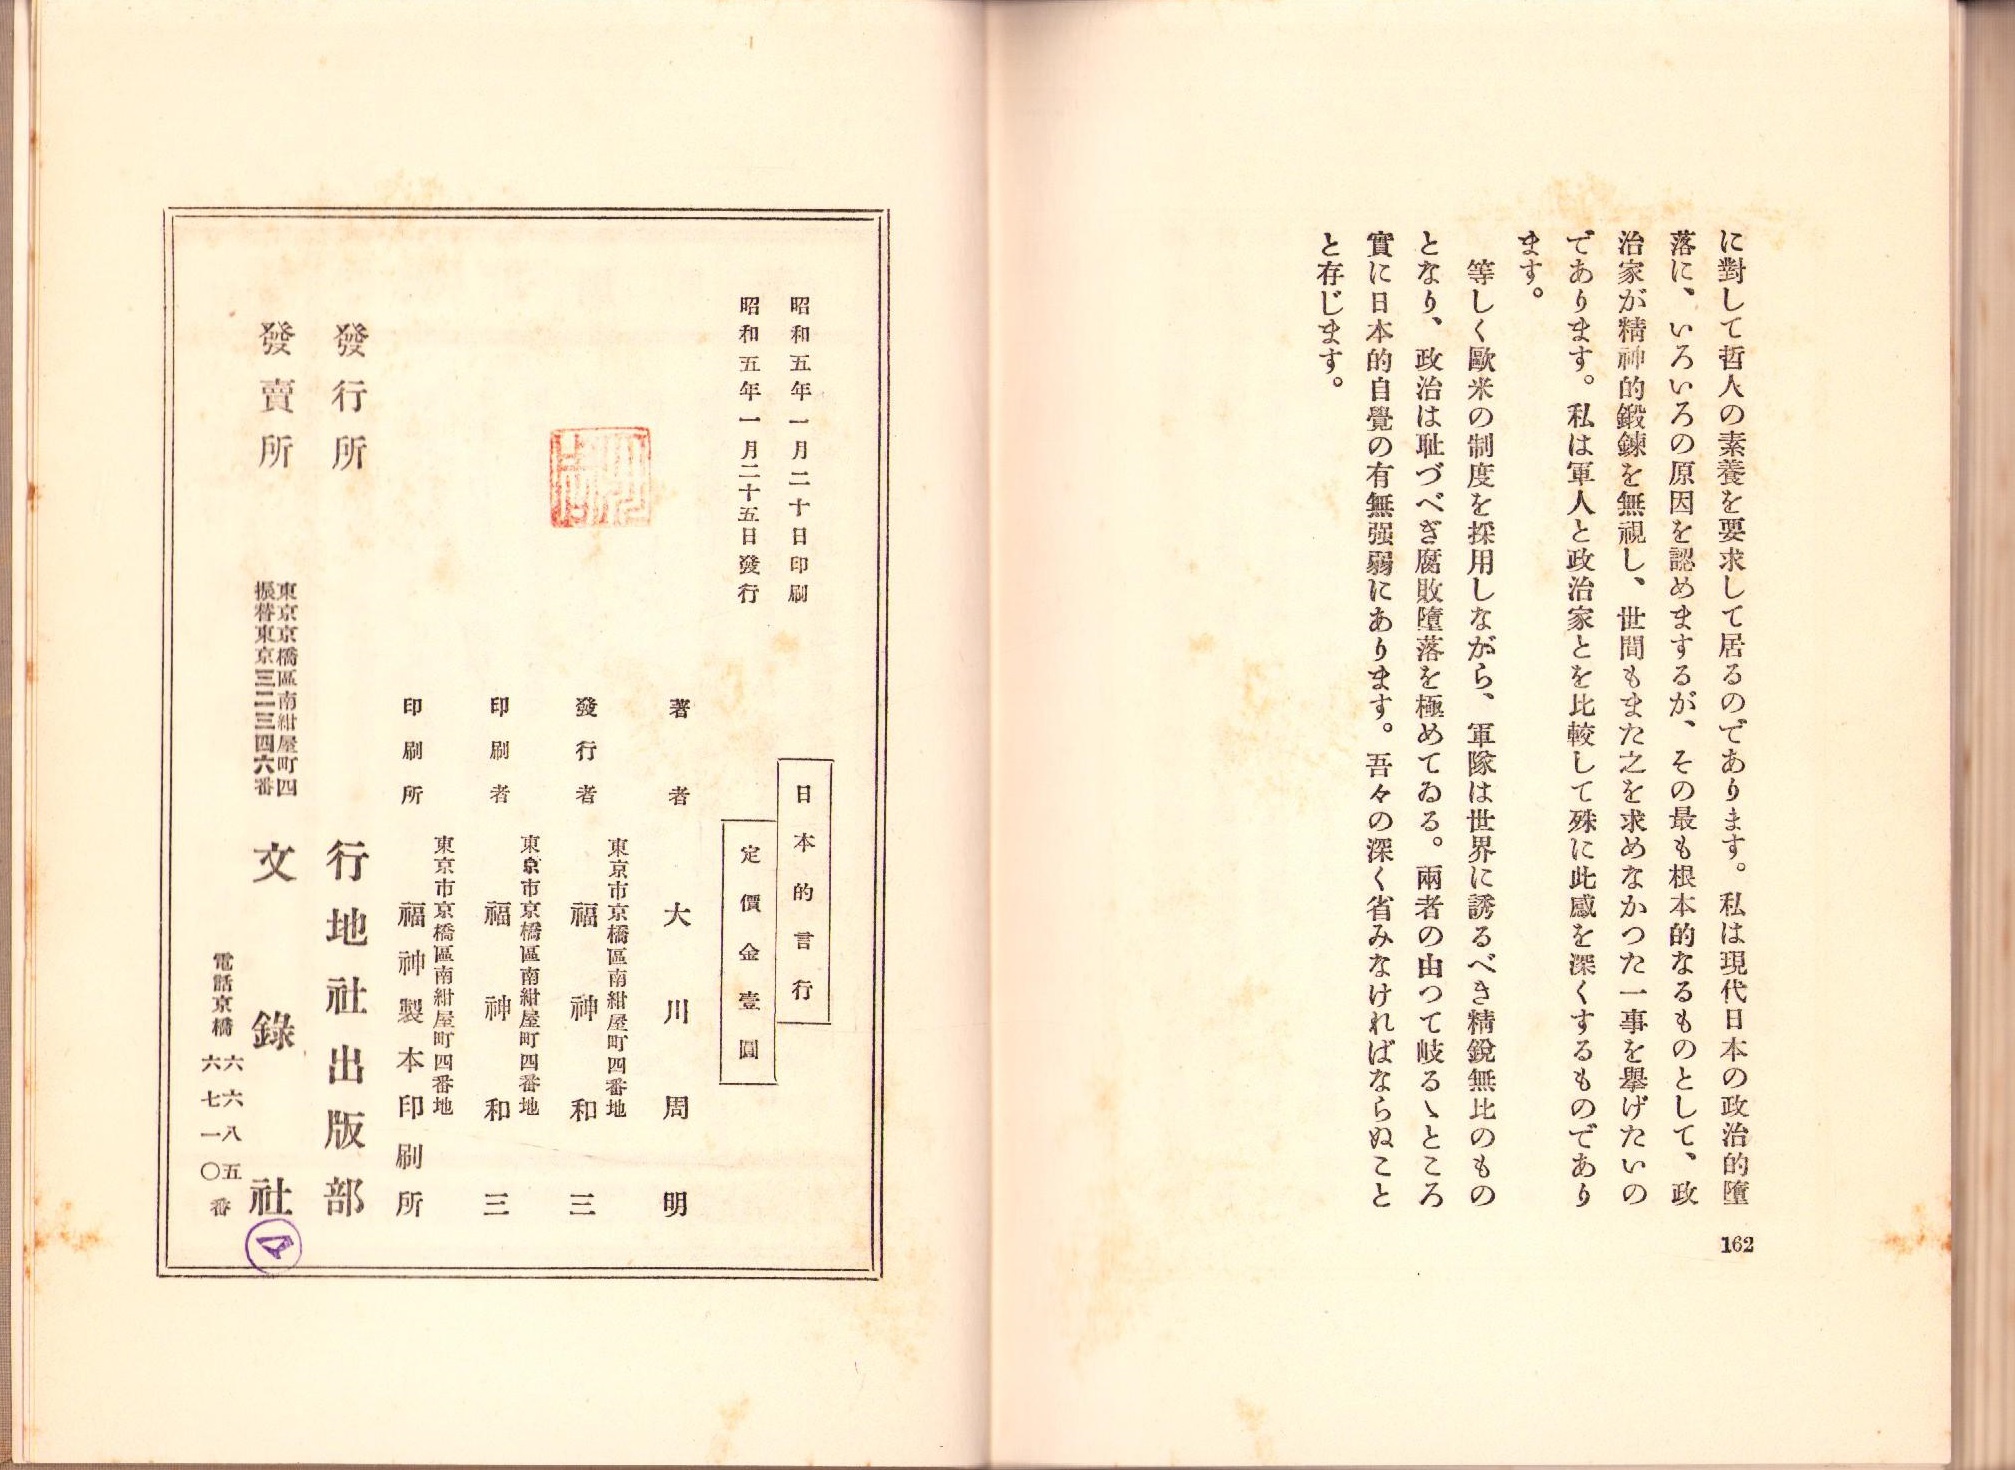 に對して哲人の素養を要求して居るのであります。私は現代日本の政治的墮
落に、いろいろの原因を認めまするが、その最も根本的なるものとして、政
治家が精神的鍛鍊を無視し、世間もまた之を求めなかつた一事を擧げたいの
であります。私は軍人と政治家とを比較して殊に此感を深くするものであり
ます。
等しく歐米の制度を採用しながら、軍隊は世界に誘るべき精銳無比のもの
となり、政治は耻づべぎ腐敗墮落を極めてゐる。兩者の由つて岐るゝところ
實に日本的自覺の有無强弱にあります。吾々の深く省みなければならぬこと
と存じます。
162
昭和五年一月二十日印刷
昭和五年一月二十五日發行
日本的言行
定價金壹圓
著者 大川周明
東京市京橋區南紺屋町四番地
發行者 福神和三
東京市京橋區南紺屋町四番地
印刷者 福神和三
東京市京橋區南紺屋町四番地
印刷所 福神製本印刷所
發行所 行地社出版部
東京京橋區南紺屋町四
振替東京三二三四六番
發賣所 文錄社
電話京橋 六六八五
六七一〇番